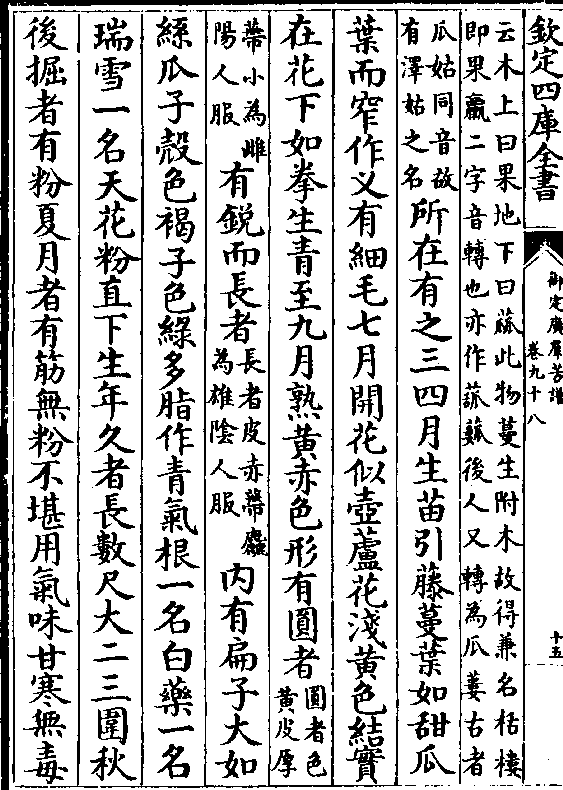 欽定四庫全書
御定廣羣芳譜
卷九十八
十五
云木上曰果地下曰蓏此物蔓生附木故得兼名栝樓
即果臝二字音轉也亦作菰𤬛後人又轉為瓜蔞古者
瓜姑同音故
有澤姑之名
所在有之三四月生苗引藤蔓葉如甜瓜
葉而窄作叉有細毛七月開花似壺蘆花淺黄色結實
在花下如拳生青至九月熟黄赤色形有圓者
圓者色
黄皮厚
蒂小為雌
陽人服
有銳而長者
長者皮赤蒂麤
為雄陰人服
内有扁子大如
絲瓜子殻色褐子色綠多脂作青氣根一名白藥一名
瑞雪一名天花粉直下生年久者長數尺大二三圍秋
後掘者有粉夏月者有筋無粉不堪用氣味甘寒無毒